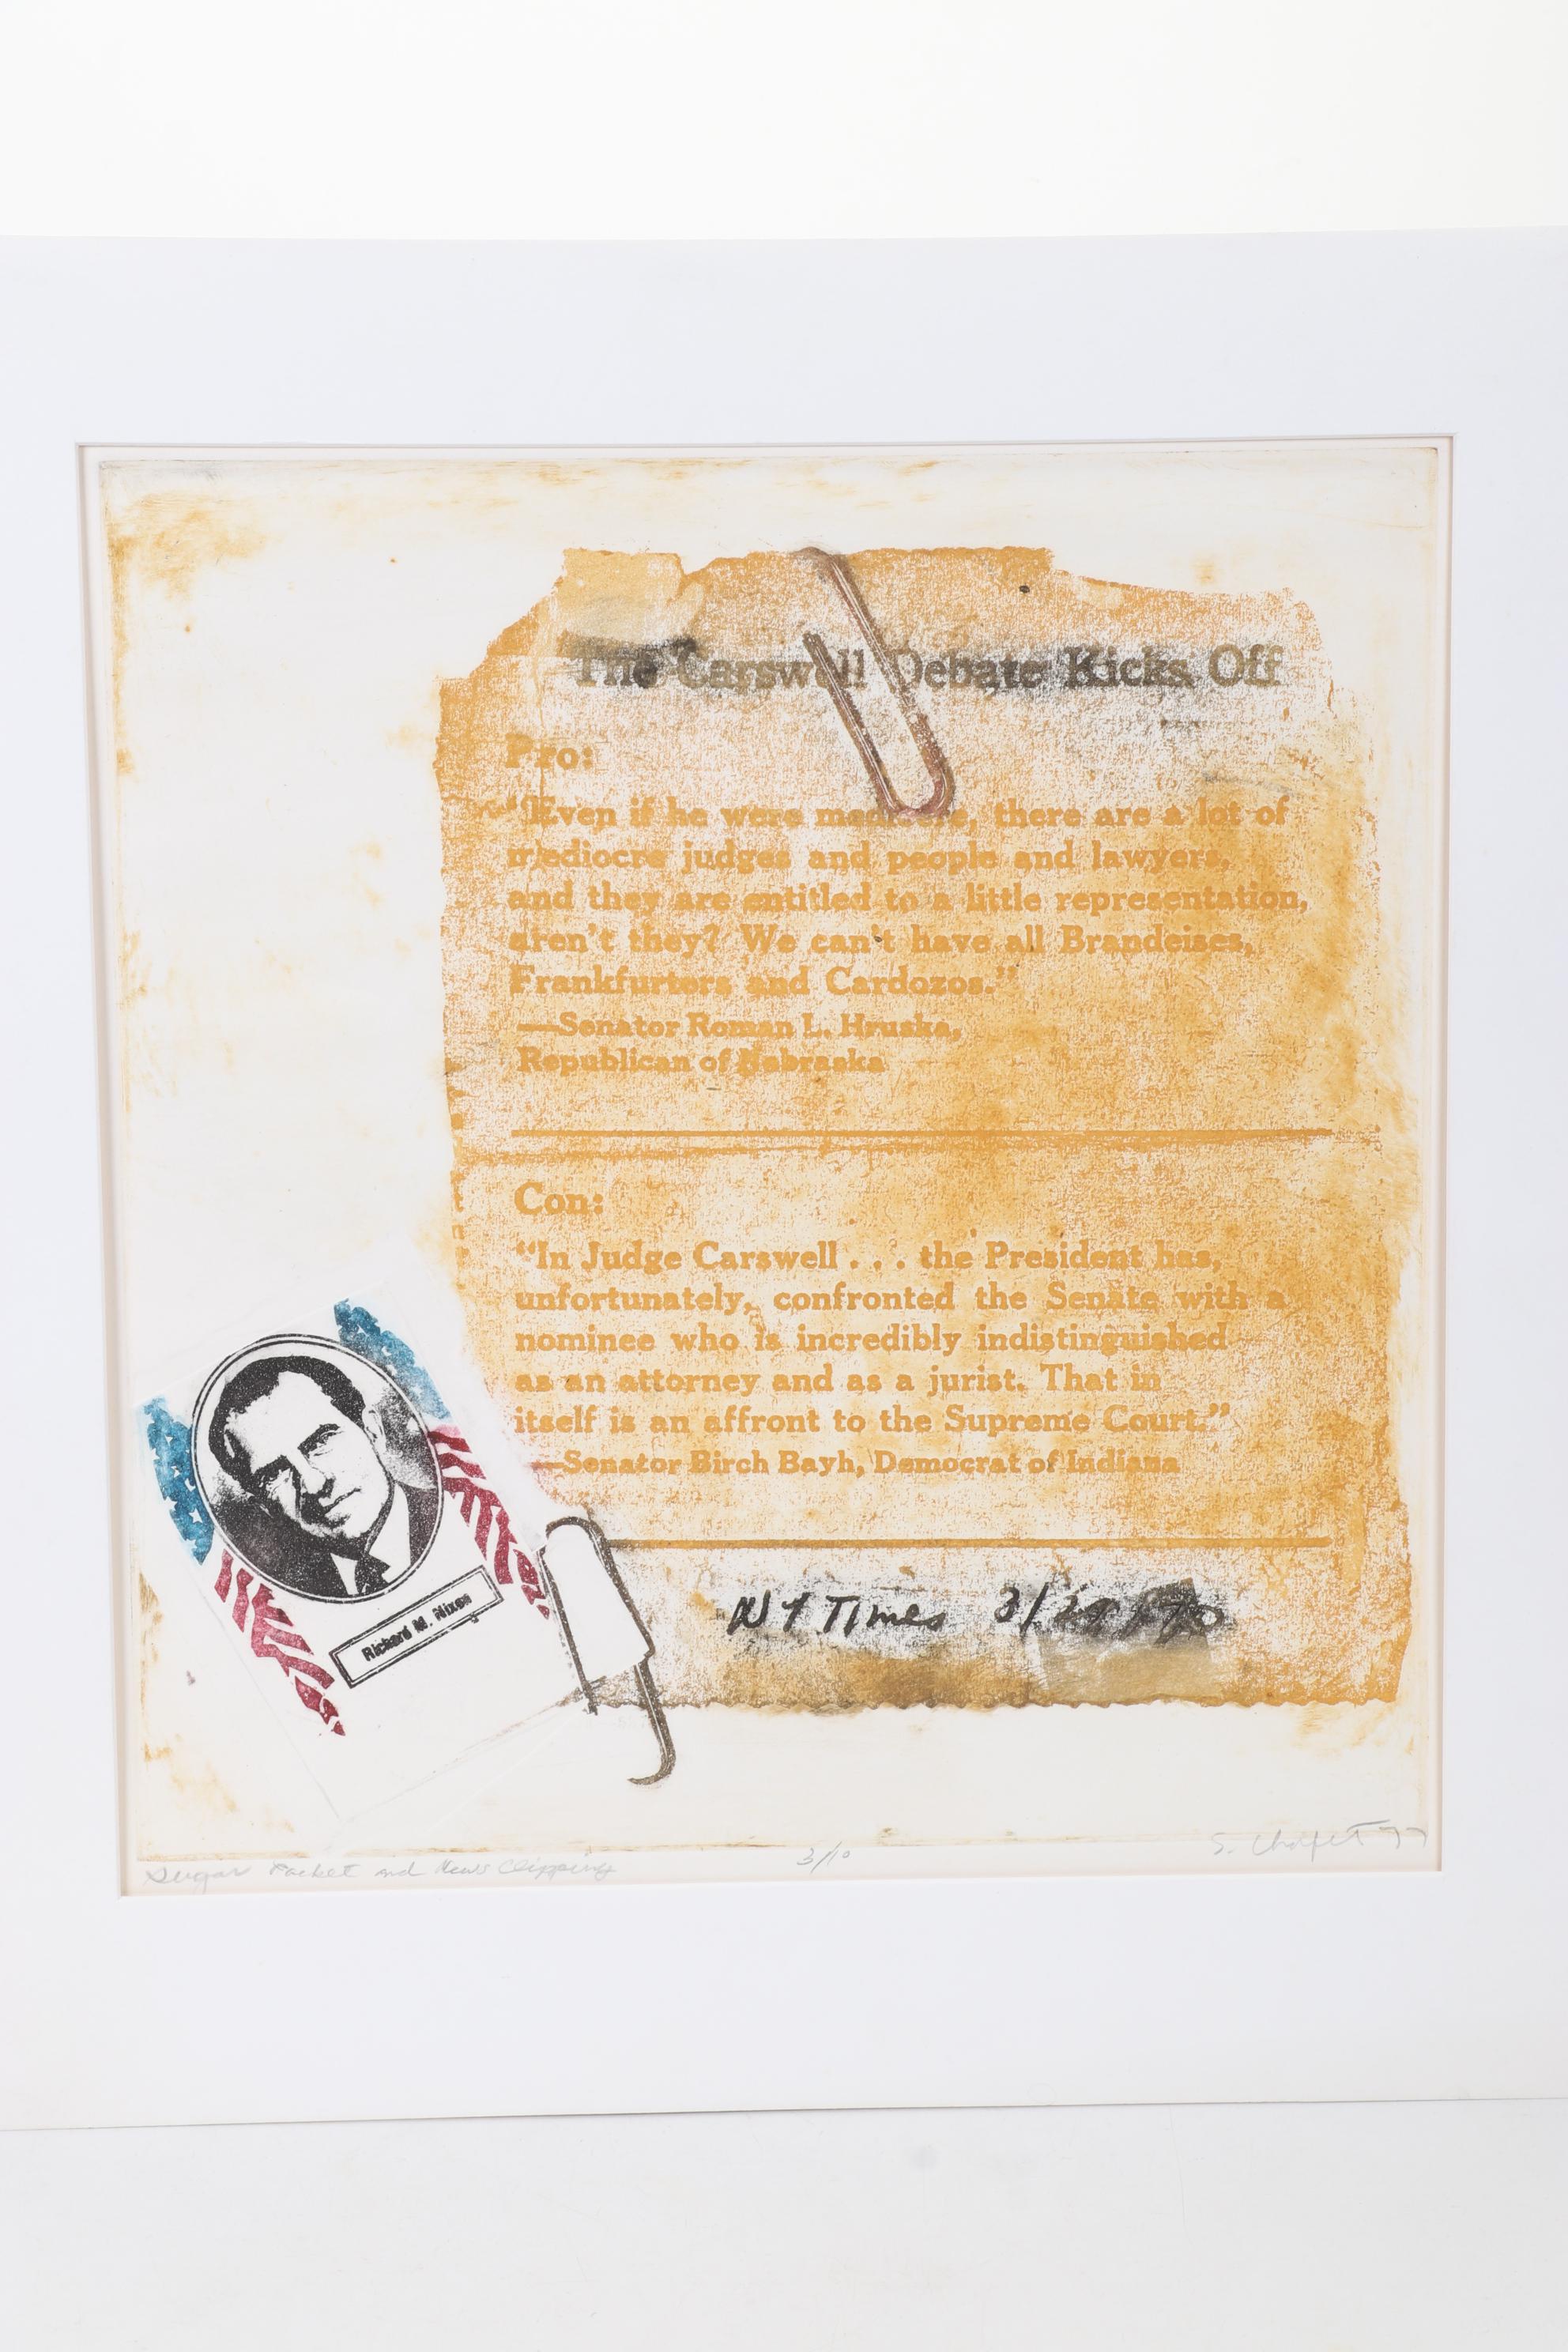 The Carswell Debate Kicks Off
Pro:
"Even if he were mediocre, there are a lot of
mediocre judges and people and lawyers,
and they are entitled to a little representation,
aren't they? We can't have all Brandeises,
Frankfurters and Cardozos."
—Senator Roman L. Hruska,
Republican of Nebraska
Con:
"In Judge Carswell . . . the President has,
unfortunately, confronted the Senate with a
nominee who is incredibly indistinguished
as an attorney and as a jurist. That in
itself is an affront to the Supreme Court."
—Senator Birch Bayh, Democrat of Indiana
NY Times
Richard M. Nixon
Sugar Packet and News Clipping
3/10
S. Chafetz 77